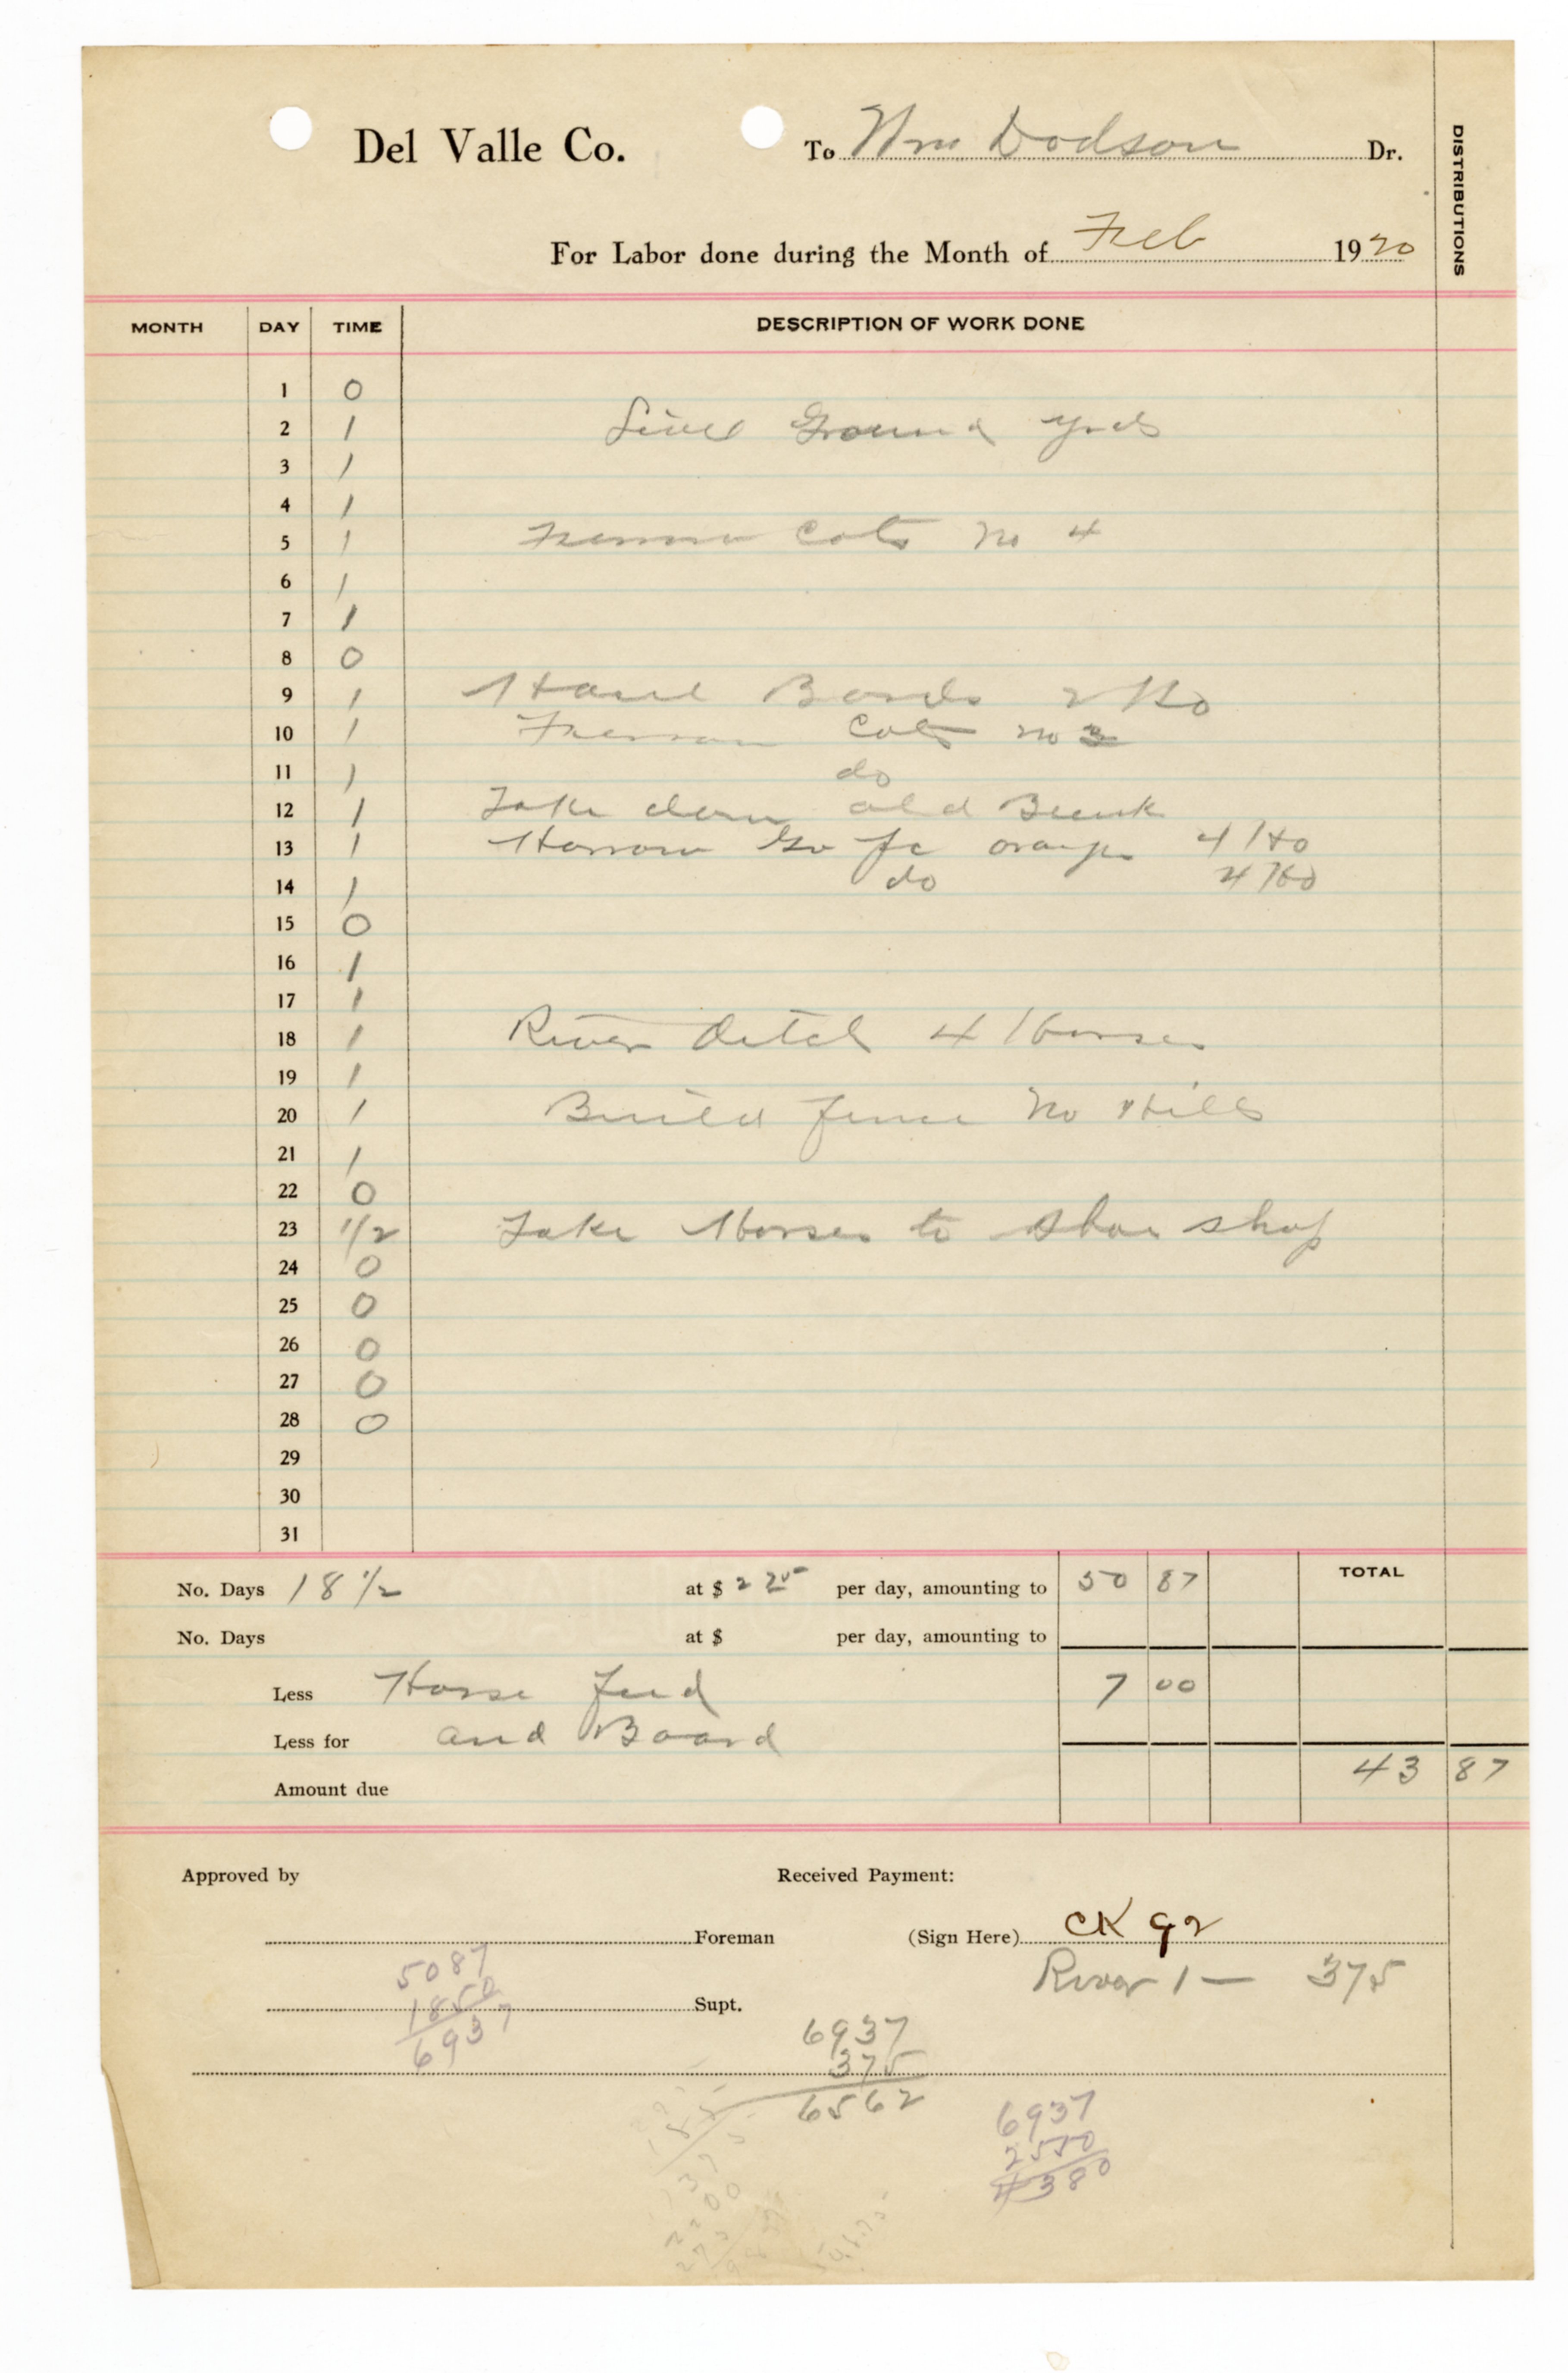 Del Valle Co. To Wm Dodson Dr.
DISTRIBUTIONS
For Labor done during the Month of Feb 1920
MONTH DAY TIME DESCRIPTION OF WORK DONE
1 0
2 1 Level Ground yrds
3 1
4 1
5 1 Cots No 4
6 1
7 1
8 0
9 1 Haul Bords 2 Ho
10 1 Cots no 3
11 1 do
12 1 Take down old Bunk
13 1 Harrow Gr fc orange 4 Ho
14 1 do 4 Ho
15 0
16 1
17 1
18 1 River Ditch 4 Horses
19 1
20 1 Build fence No Hills
21 1
22 0
23 1/2 Take Horses to Shoe shop
24 0
25 0
26 0
27 0
28 0
29
30
31
No. Days 18 1/2 at $ 2 75 per day, amounting to 50 87 TOTAL
No. Days at $ per day, amounting to
Less Horse feed 7 00
Less for and Board
Amount due 43 87
Approved by Received Payment:
Foreman (Sign Here) CK 92
River 1 — 375
5087
1850
6937
Supt.
6937
375
6562
6937
2550
4380